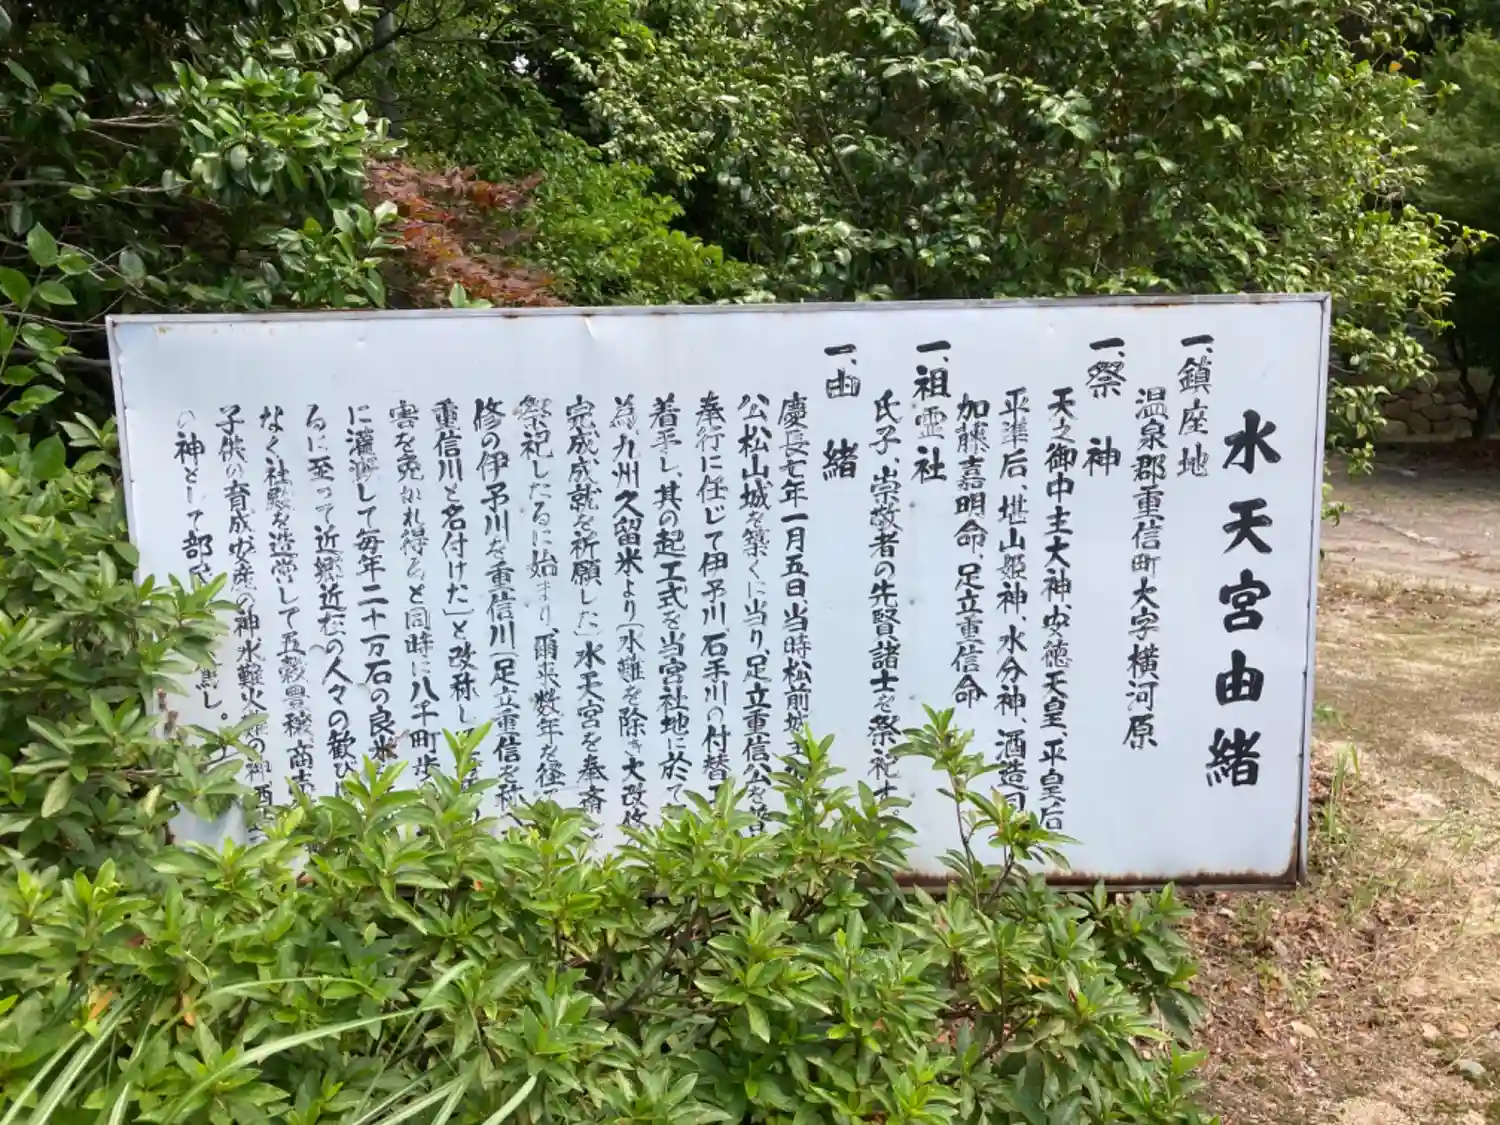 水天宮由緒
一、鎮座地
温泉郡重信町大字横河原
一、祭神
天之御中主大神、安徳天皇、平皇后
平準后、堪山姫神、水分神、酒造司
加藤嘉明命、足立重信命
一、祖霊社
氏子、崇敬者の先賢諸士を祭祀す。
一、由緒
慶長七年一月五日当時松前城主
公松山城を築くに当り、足立重信公を普
奉行に任じて伊予川石手川の付替工
着手し、其の起工式を当宮社地に於て
為九州久留米より「水難を除き大改修
完成成就を祈願した」水天宮を奉斎
祭祀したるに始まり、爾来数年を径て
修の伊予川を重信川(足立重信を称
重信川と名付けた」と改称し
害を免かれ得ると同時に八千町歩
に灌漑して毎年二十万石の良米
るに至って近郷近在の人々の歓び
なく社殿を造営して五穀豊穣、商売
子供の育成安産の神水難火難の神酒
の神として部 し。